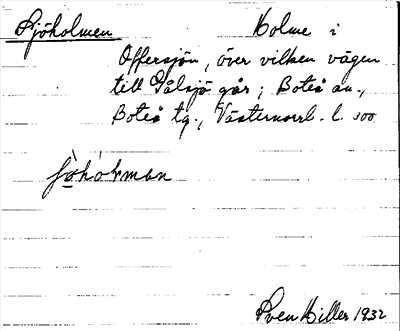 Sjöholmen Holme i
Offersjön, över vilken vägen
till Gålsjö går; Boteå sn.,
Boteå tg., Västernorrl. l. 300
Sven Hiller 1932